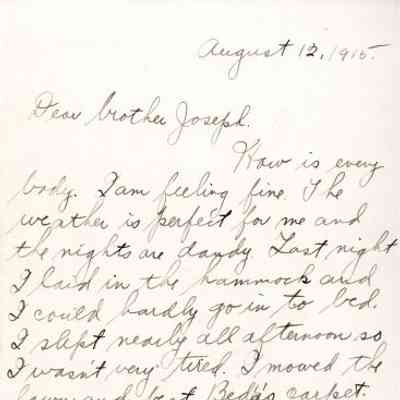 August 12, 1915.
Dear brother Joseph.
How is every
body. I am feeling fine. The
weather is perfect for me and
the nights are dandy. Last night
I laid in the hammock and
I could hardly go in to bed.
I slept nearly all afternoon so
I wasn't very tired. I mowed the
lawn and beat Beda's carpet.